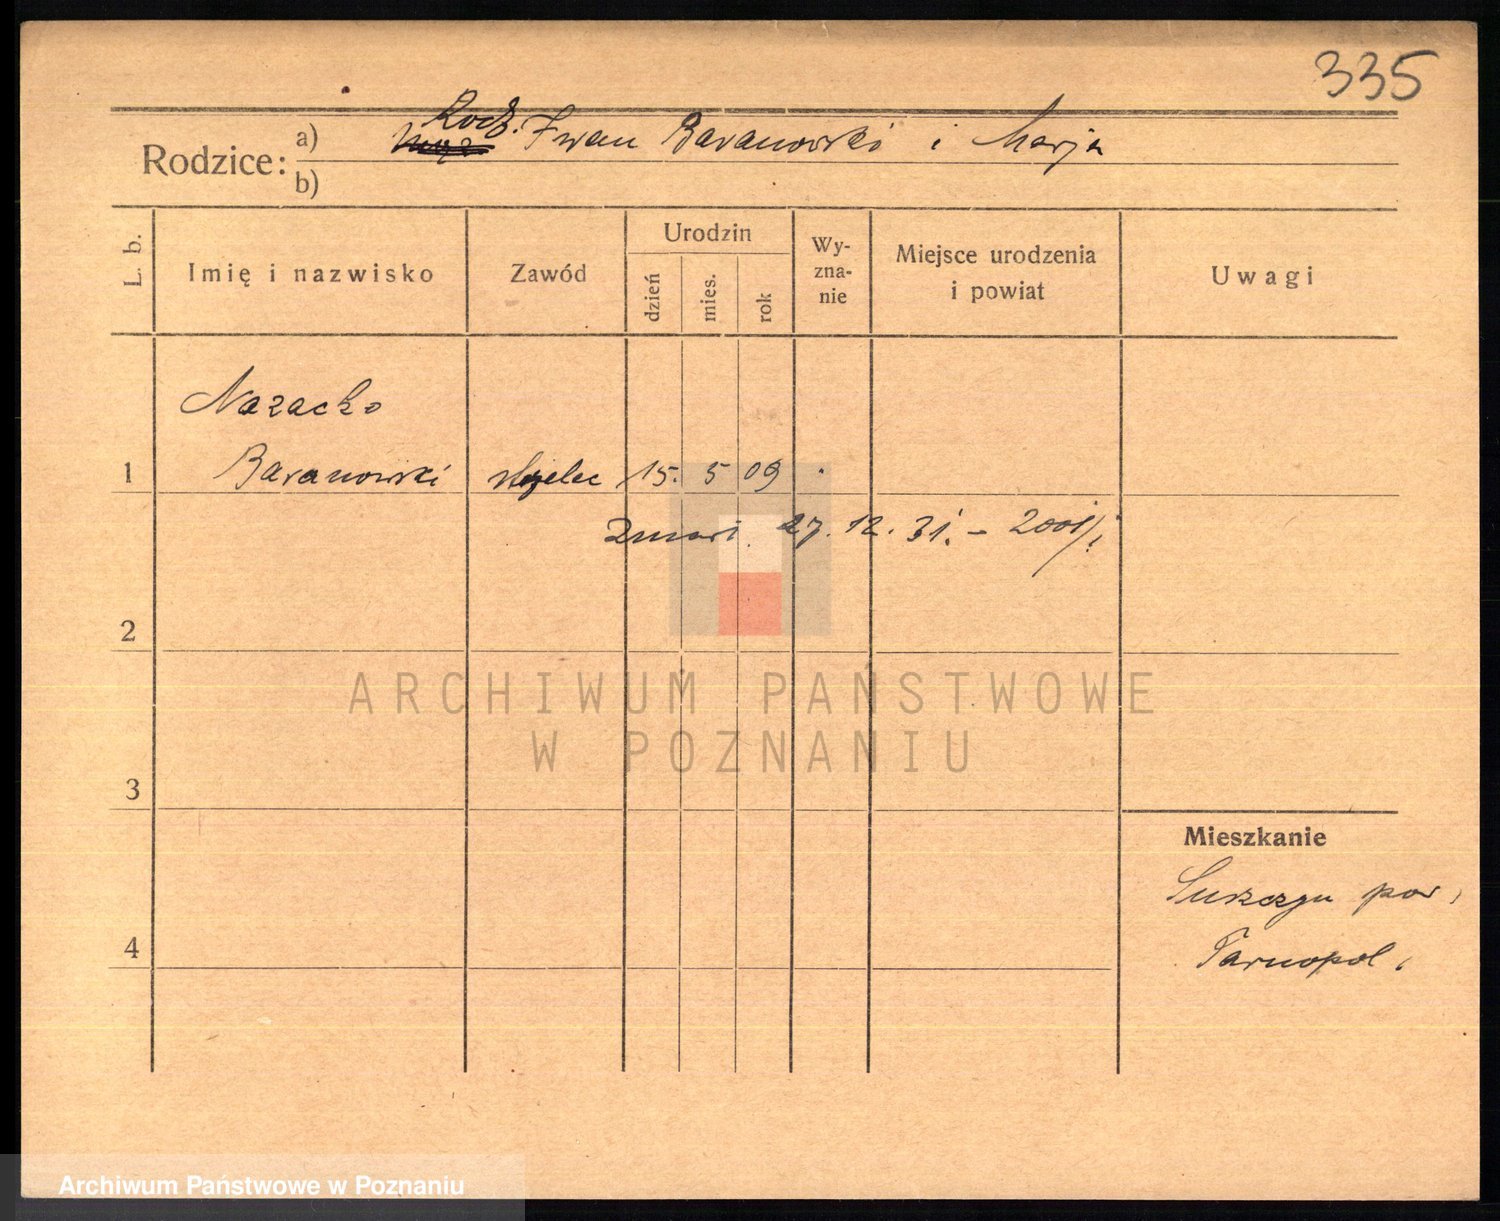 335
Rodz. Iwan Baranowski i Marja
Rodzice: a)
b)
L. b.
Imię i nazwisko
Zawód
Urodzin
dzień
mies.
rok
Wy-
zna-
nie
Miejsce urodzenia
i powiat
Uwagi
Nazacko
1 Baranowski strzelec 15. 5 09
Zmarł. 27. 12. 31. – 2001/i
2
ARCHIWUM PAŃSTWOWE
W POZNANIU
3
Mieszkanie
pow.
4 Tarnopol.
Archiwum Państwowe w Poznaniu